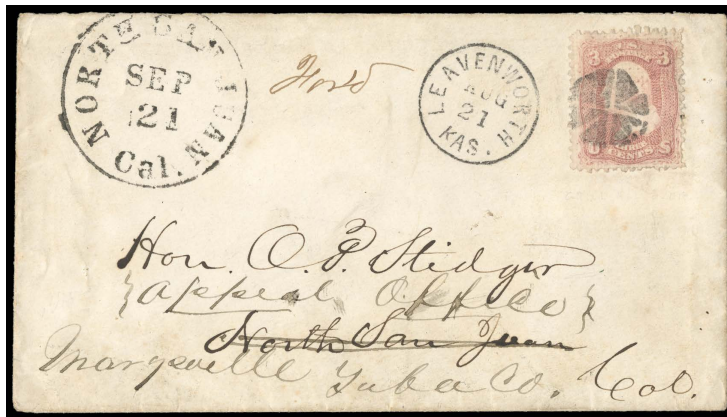 NORTH SAN JUAN
SEP
21
Cal.
Ford
LEAVENWORTH
AUG
21
KAS.
3 3
U S
CENTS
Hon. O. P. Stidger
{Appeal Office}
North San Juan
Marysville Yuba Co. Cal.